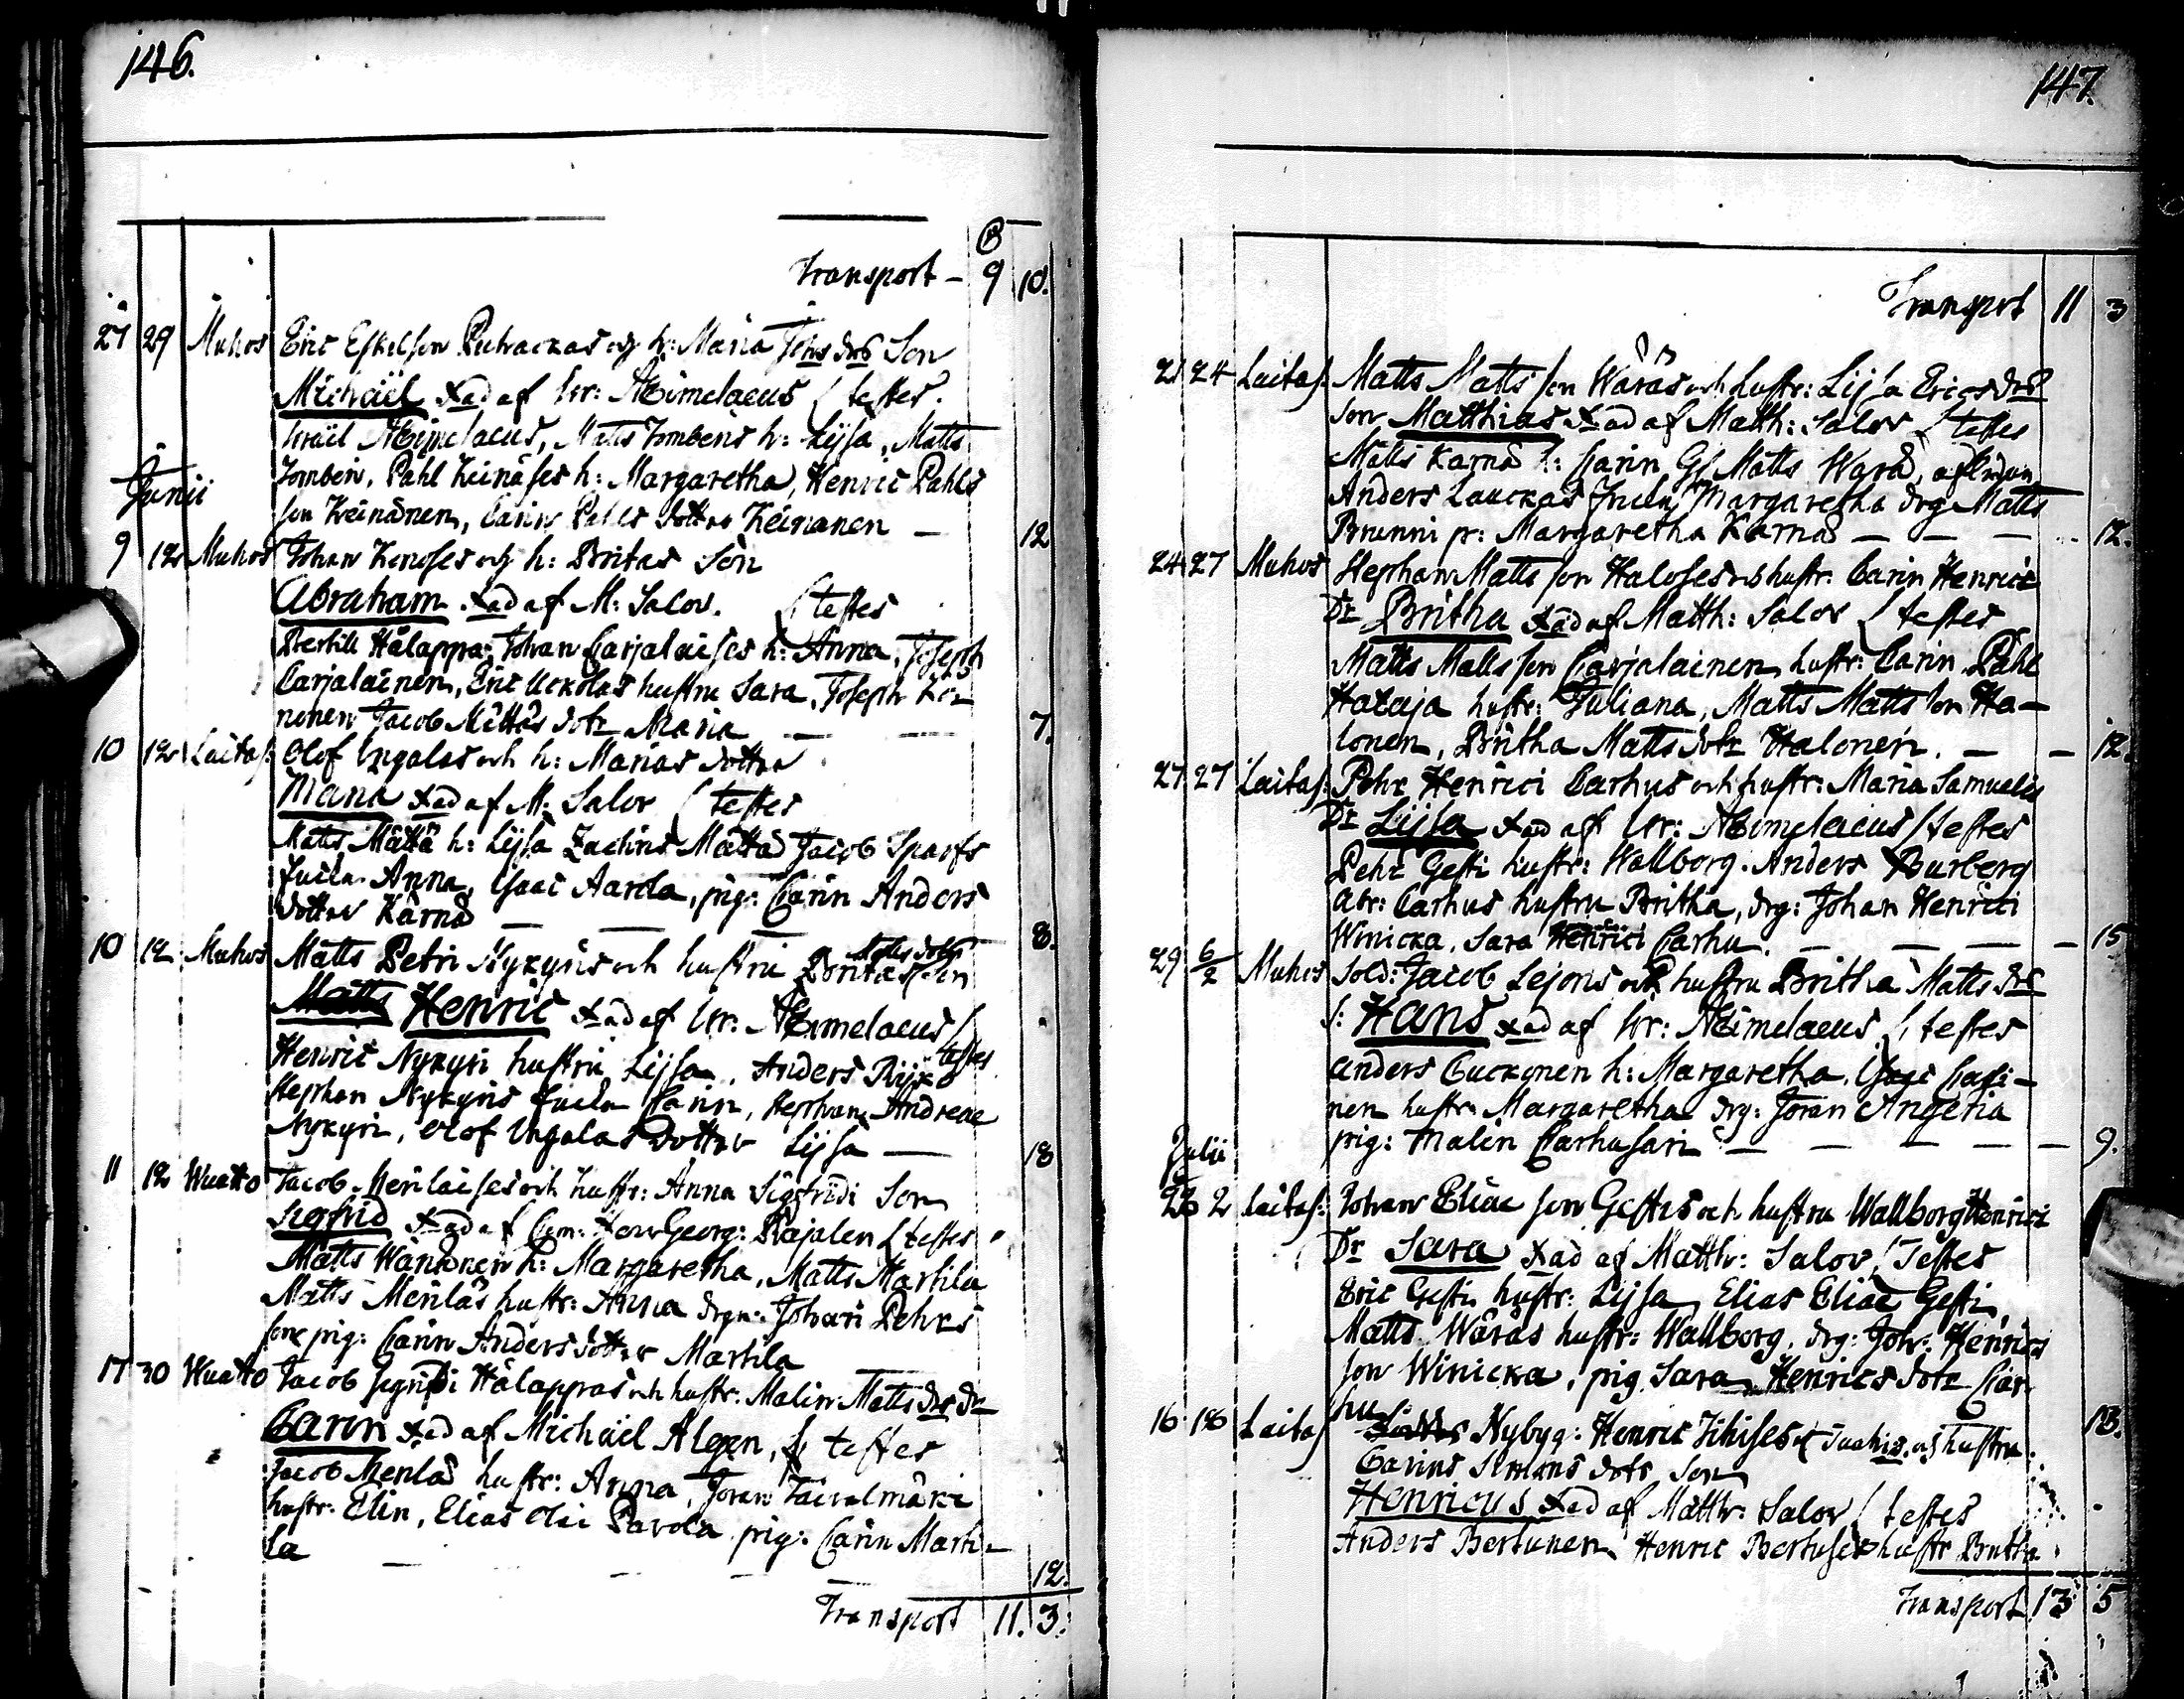 146.
Transport - 9 10.
27 29 Muhos Eric Eskelson Puhackas och h: Maria Johs drs Son
Michäel Xad af hr: Æimelaeus / testes.
Israël Æimelaeus, Matts Tombens h: Lijsa, Matts
Tomben, Påhl Keinäses h: Margaretha, Henric Påhls
Junii
son Keinänen, Carin Påhls dotter Keinänen - 12
9 12 Muhos Johan Kenoses och h: Britas Son
Abraham Xad af M: Salov. / testes
Bertill Hålappa, Johan Carjalaises h: Anna, Joseph
Carjalainen, Eric Uckolas hustru Sara, Joseph Ke-
nonen Jacob Mättäs dotr Maria - - 7.
10 12 Laitas: Olof Ungalas och h: Marias dotter
Maria Xad af M: Salov / testes
Matts Mättä h: Lijsa Zachris Mättä Jacob Sparfs
Anna, Isaac Aarola, pig: Carin Anders
dotter Kärnä - - - 8.
10 12 Muhos Matts Petri Nykyris och hustru Britas Matts dotr son
Matts Henric Xad af hr: Æimelaeus /
testes
Henric Nykyri hustru Lijsa, Anders Rijko
Stephan Nykyris Carin, Stephan Andreae
Nykyri, Olof Ungalas dotter Lijsa - 18
11 12 Wuotto Jacob Meriläises och hustr: Anna Sigfridi Son
Sigfrid Xad af Georg: Rajalen / testes
Matts Wänänen h: Margaretha, Matts Martila
Matts Meriläs hustr: Anna drgn: Johan Pehrs
son pig: Carin Anders dotter Martila
17 30 Wuotto Jacob Sigfridi Hålappas och hustr: Malin Matts drs dr
Carin Xad af Michäel Algen, / testes
Jacob Merilä hustr: Anna, Joran Taivalmäki
hustr: Elin, Elias Olai Pavola pig: Carin Marti-
la - - - 12.
Transport 11. 3.
147.
Transport 11 3
21 24 Laitas: Matts Matts son Wäräs och hustr: Lijsa Erics drs
son Matthias Xad af Matth: Salov / testes
Matts Kärnä h: Carin Matts Wärä,
Anders Lauckas Margaretha drg Matts
Brunni p: Margaretha Kärnä - - - 12.
24 27 Muhos Stephan Matts son Haloses och hustr: Carin Henrics
Dr Britha Xad af Matth: Salov / testes
Matts Matts son Carjalainen hustr: Carin Påhl
Hataja hustr: Juliana, Matts Matts son Ha-
lonen, Britha Matts dotr Halonen. - - 12.
27 27 Laitas: Pehr Henrici Carhus och hustr: Maria Samuelis
Dr Lijsa Xad af hr: Æimelaeus / testes
Pehr Gesti hustr: Wallborg. Anders Burberg
Abr: Carhus hustru Britha, drg: Johan Henrici
Winicka, Sara Henrici Carhu. - - - 15
29 6/2 Muhos Sold: Jacob Lejons och hustru Britha Matts drs
s: Hans Xad af hr: Æimelaeus / testes
Anders Cuckonen h: Margaretha, Isaac Casi-
nen hustr: Margaretha drg: Joran Angeria
pig: Malin Carhusari - - - - - 9.
Julii
2 Laitas: Johan Eliae son Gestis och hustru Wallborg Henrici
Dr Sara Xad af Matth: Salov / Testes
Eric Gesti hustr: Lijsa Elias Eliae Gesti
Matts Wäräs hustr: Wallborg, drg: Joh: Henrics
son Winicka, pig Sara Henrics dotr Car-
hu 13.
16 18 Laitas Nybyg: Henric och hustru
Carins Simons dotr son
Henricus Xad af Matth: Salov / testes
Anders Bertunen Henric Bertuses hustr Britha
Transport 13 5